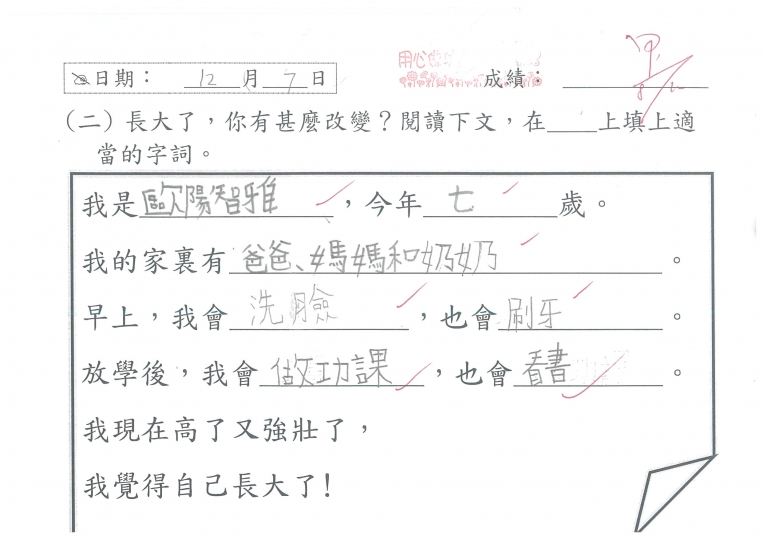 日期： 12 月 7 日
用心
成績： 甲
（二）長大了，你有甚麼改變？閱讀下文，在____上填上適
當的字詞。
我是歐陽智雅，今年七歲。
我的家裏有爸爸、媽媽和奶奶。
早上，我會洗臉，也會刷牙。
放學後，我會做功課，也會看書。
我現在高了又強壯了，
我覺得自己長大了！